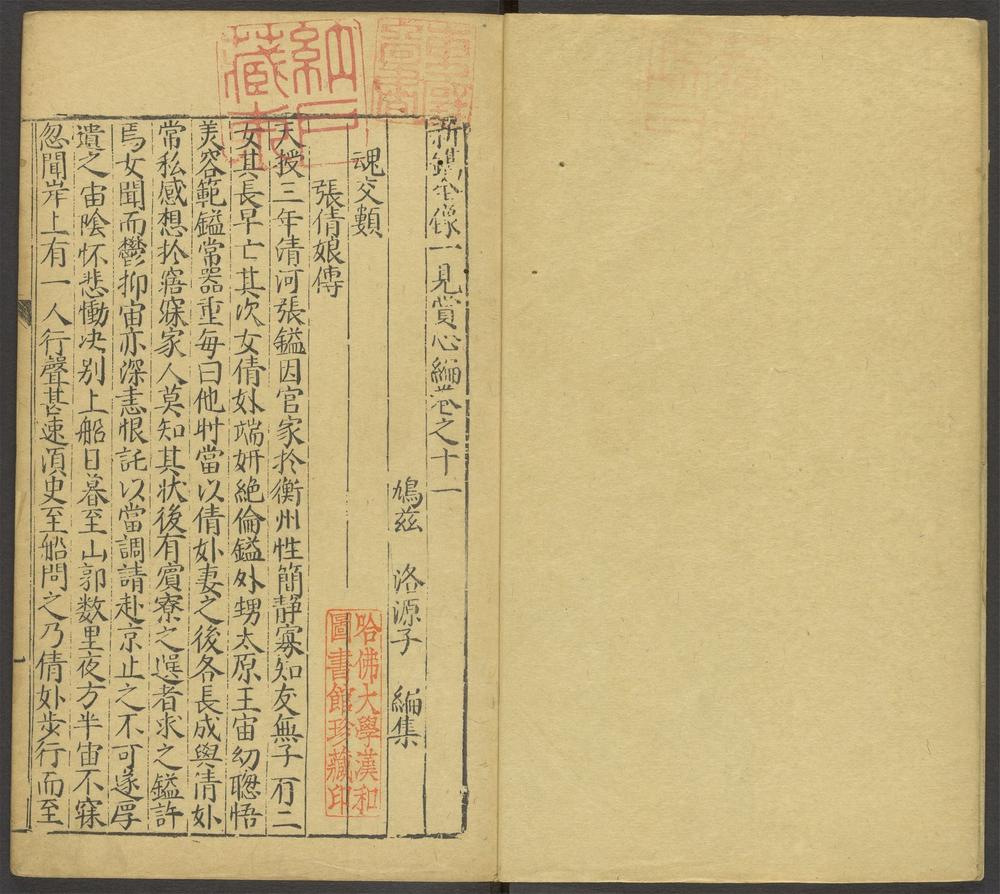 新鍥全像一見賞心編卷之十一
鳩茲　洛源子　編集
魂交類
張倩娘傳
天授三年清河張鎰因官家於衡州性簡靜寡知友無子有二
女其長早亡其次女倩娘端妍絕倫鎰外甥太原王宙幼聰悟
美容範鎰常器重每曰他时當以倩娘妻之後各長成與清娘
常私感想於窹寐家人莫知其状後有賓寮之選者求之鎰許
焉女聞而鬱抑宙亦深恚恨託以當調請赴京止之不可遂厚
遣之宙陰怀悲慟决别上船日暮至山郭数里夜方半宙不寐
忽聞岸上有一人行聲甚速湏史至船問之乃倩娘步行而至
哈佛大學漢和
圖書館珍藏印